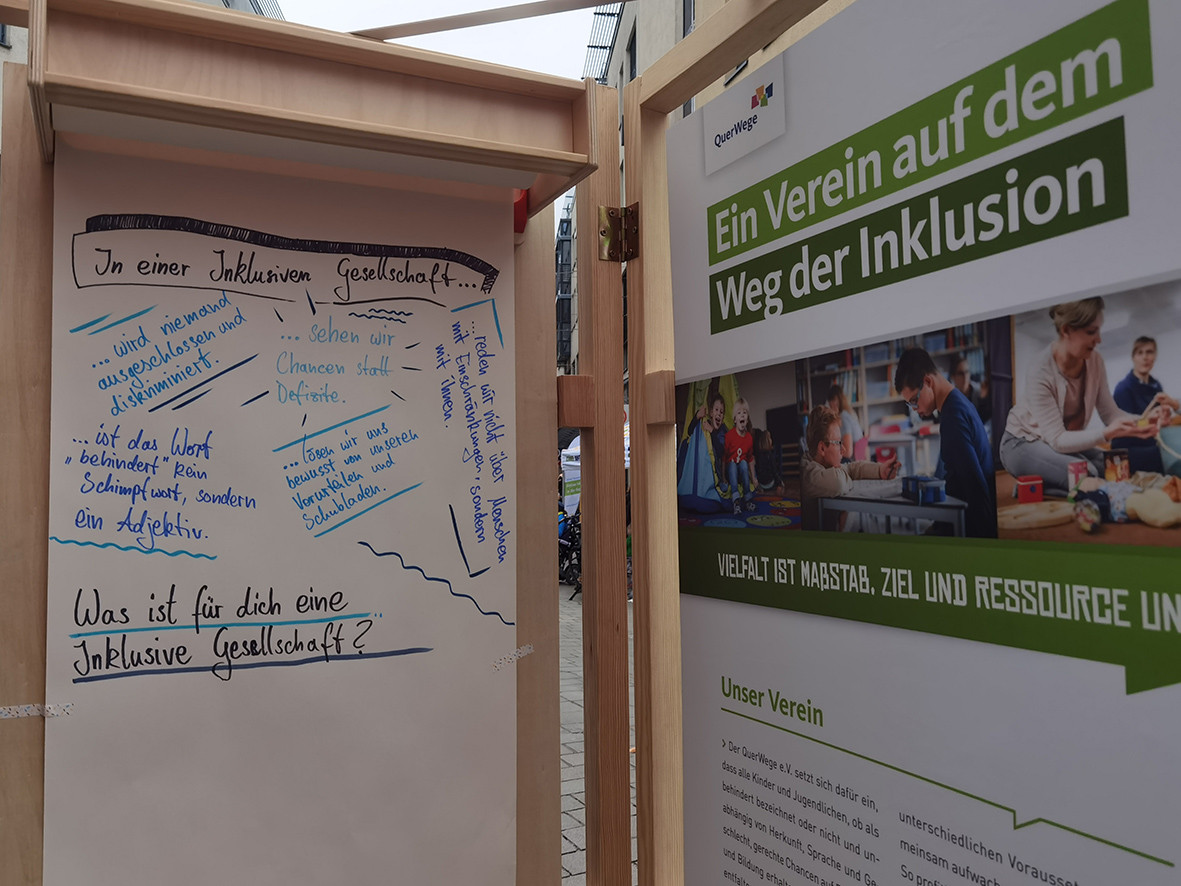 In einer Inklusiven Gesellschaft...
... wird niemand
ausgeschlossen und
diskriminiert.
... sehen wir
Chancen statt
Defizite.
... reden wir nicht über Menschen
mit Einschränkungen, sondern
mit ihnen.
... ist das Wort
"behindert" kein
Schimpfwort, sondern
ein Adjektiv.
... lösen wir uns
bewusst von unseren
Vorurteilen und
Schubladen.
Was ist für dich eine
Inklusive Gesellschaft?
QuerWege
Ein Verein auf dem
Weg der Inklusion
VIELFALT IST MAẞSTAB, ZIEL UND RESSOURCE UN
Unser Verein
> Der QuerWege e.V. setzt sich dafür ein,
dass alle Kinder und Jugendlichen, ob als
behindert bezeichnet oder nicht und un-
abhängig von Herkunft, Sprache und Ge
schlecht, gerechte Chancen auf
und Bildung erhalte
entfalte
unterschiedlichen Vorausset
meinsam aufwac
So profi